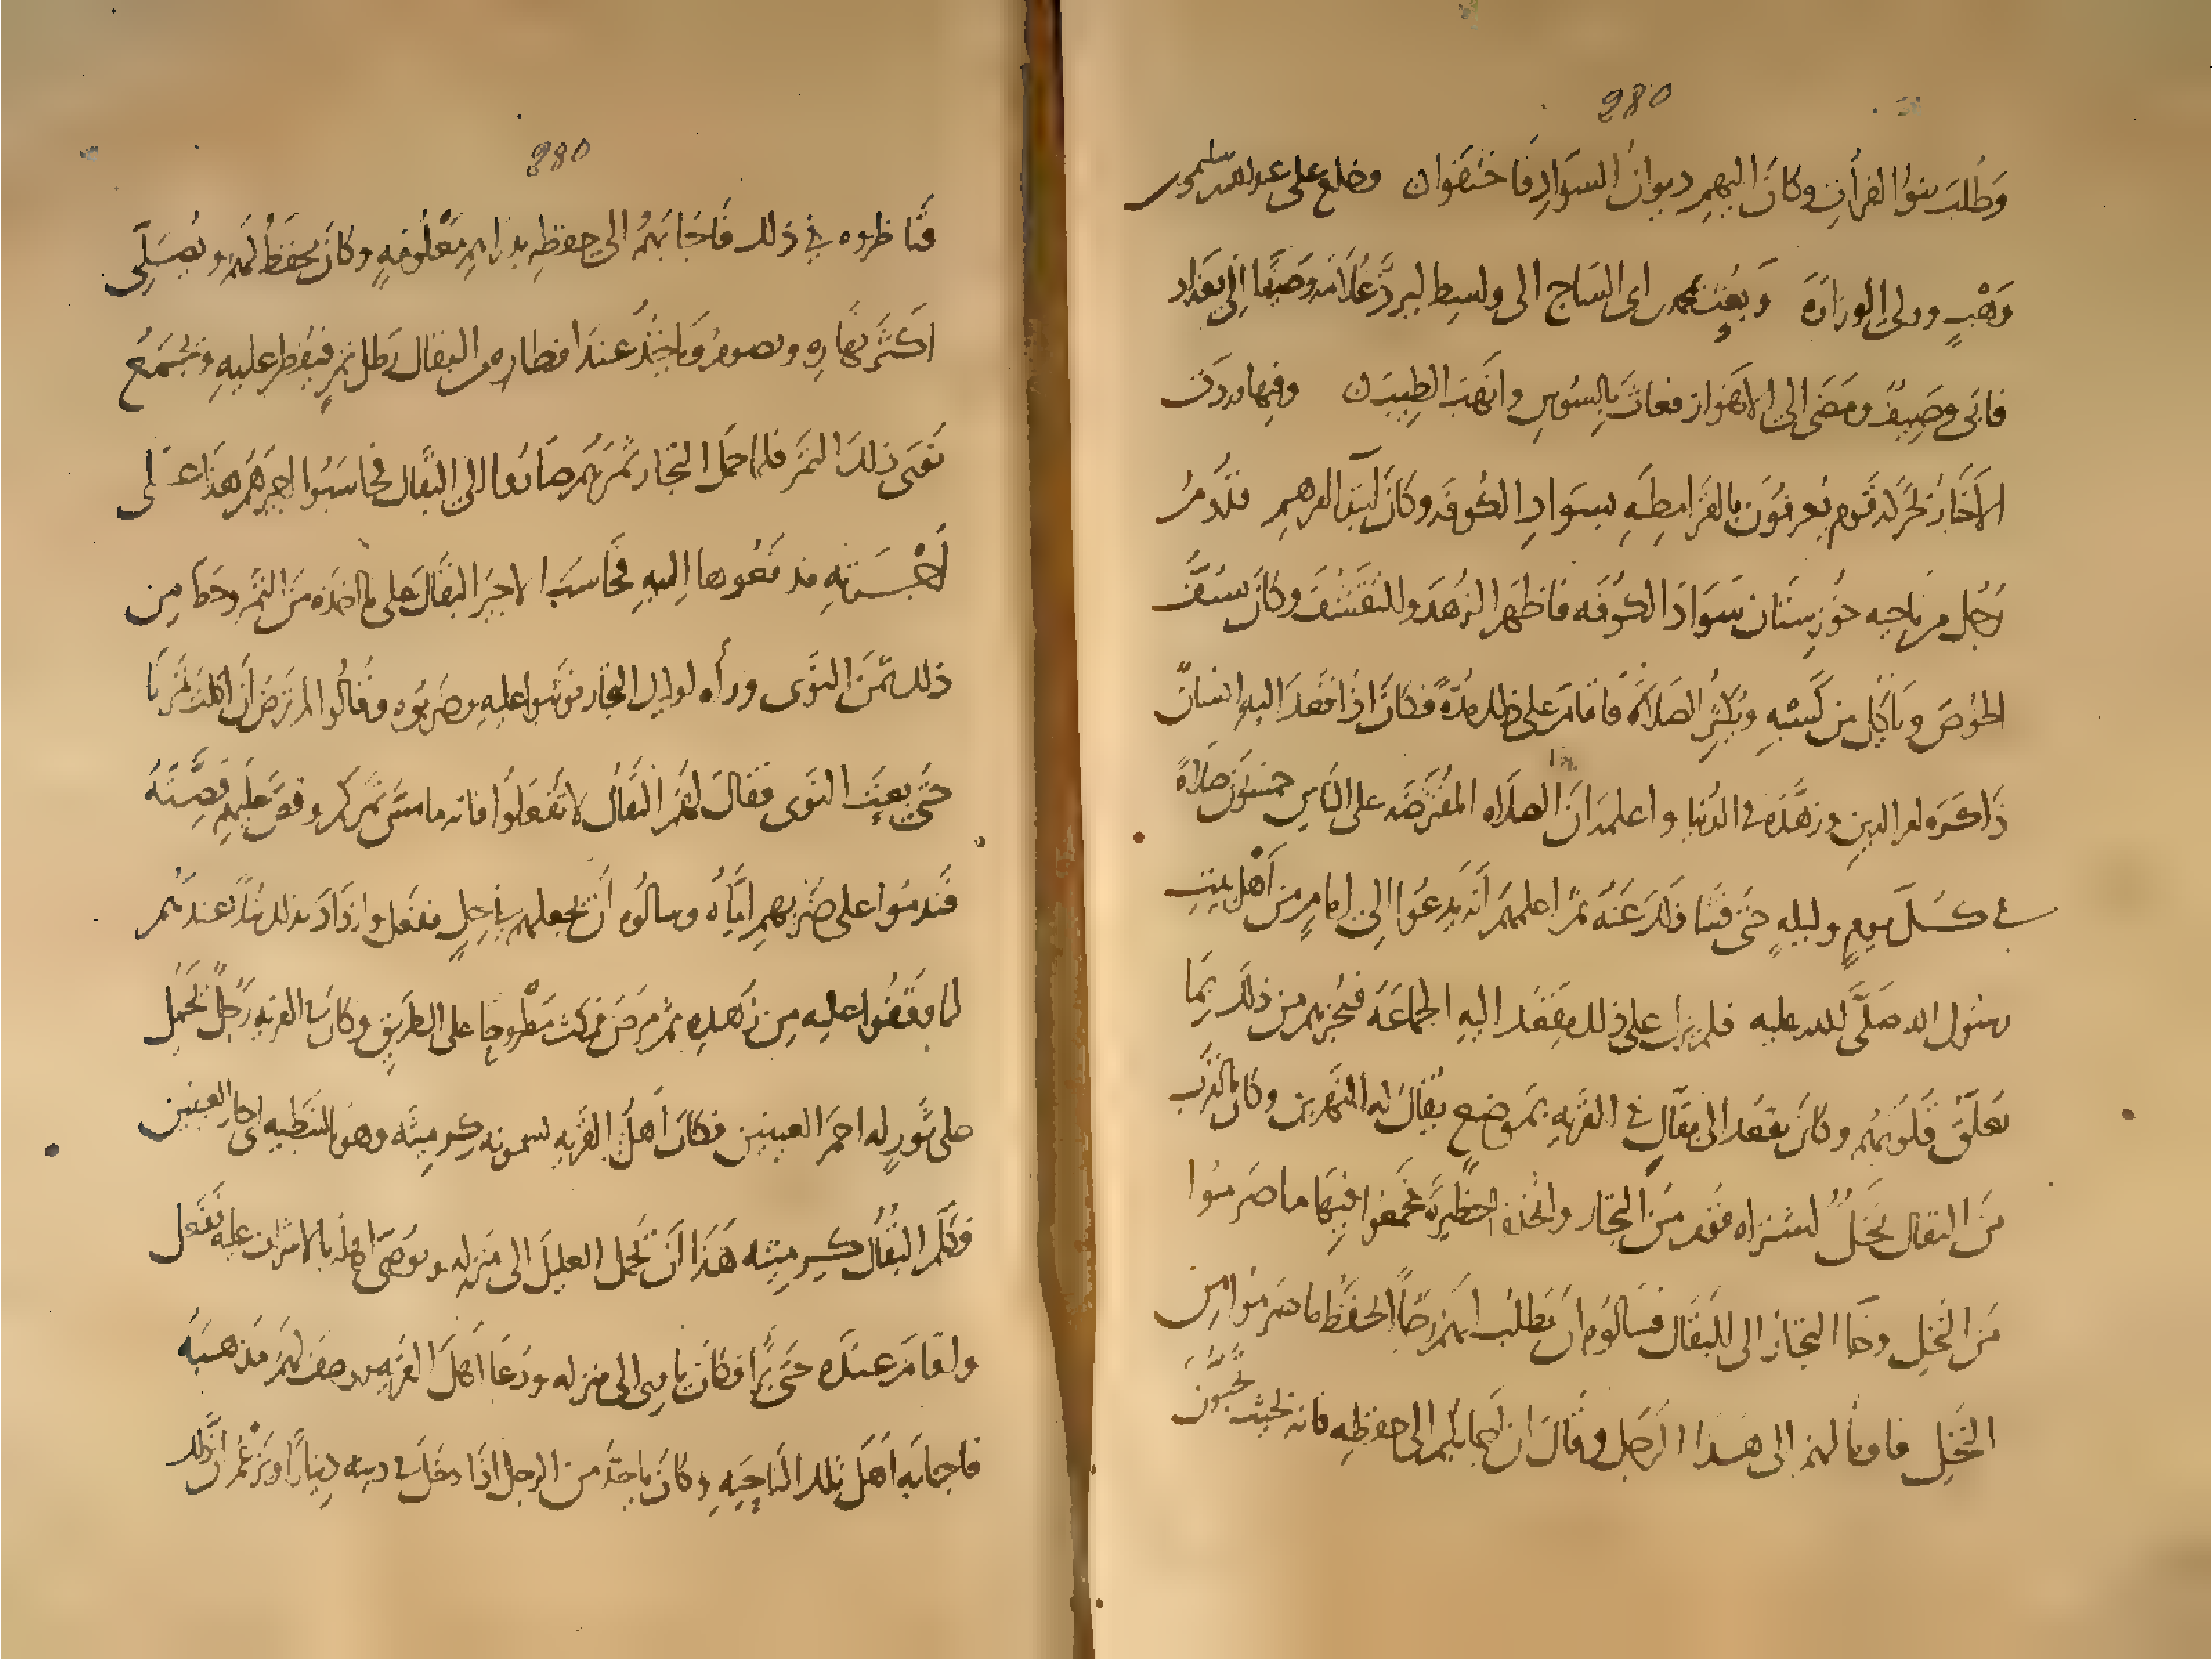 280
وَطُلبَ بنوا الفرات وكانَ اليهم ديوانُ السَوادِ فَاختفوا ن وخلع على عبد الله بن سليمن بن
وَهْبٍ وولى الوزارة وبعث محمد بن ابى الساج الى واسط ليردَّ غُلامه وصيفًا الى بغداد
فابى وصيفٌ ومَضَى الى الاهواز فعاثَ بالسُوسِ وانهَبَ الطِيب ن وفيها وردت
الاخبَارُ بحركه قومٍ يُعرفُونَ بالقرامِطَهِ بسوادِ الكوفه وكانَ ابتدا امرهم قدُومُ
رَجُل من ناحيه خُوزستان سَوادَ الكوفَه فاظهَر الزهدَ والتقشفَ وكانَ يسفّ
الخوصَ وياكل من كسبهِ ويُكثِرُ الصَلاة فاقامَ على ذلك مدةً فكانَ اذا قعدَ اليهِ انسانٌ
ذَاكرَه امر الدينِ وزهَّدَه فى الدُنيا واعلمه انَ الصلاه المفترَضَه على الناسِ خمسُونَ صَلاةً
فى كلّ يومٍ وليلهٍ حتى فشا ذلكَ عَنه ثم اعلمهم انَه يدعُوا الى امامٍ من اهل بيتِ
رسُول الله صَلَّى الله عليه فلم يزل على ذلك يقعُد اليهِ الجماعَه فيُخبرهم من ذلكَ بما
تعلّق قلوبُهُم وكانَ يقعُد الى بقّالٍ فى القريهِ بمَوضِعٍ يُقالُ له النَهرين وكان بالقرب
مِنَ البقال نخلٌ اشتراه قومٌ منَ التجار واتخذوا حظيرةً جَمعُوا فيهَا ما صَرمُوا
مِنَ النخل وجَا التجارُ الى البقال فسَالوه ان يطلُب لهم رجلاً يحفَظُ ما صَرمُوا من
النخل فاومَا لهم الى هَذَا الرجل وقَالَ ان اجابكم الى حفظِه فانه بحيث تحبُّونَ
280
فناظروه فى ذلك فاجَابَهُم الى حفظِهِ بدراهِم مَعْلُومَهٍ وكانَ يحفَظُ لهم ويُصَلِّى
اكثر نهارِه ويصومُ وياخُذُ عندَ افطاره من البقال رطل تمرٍ فيُفطِر عليهِ ويجمَعُ
نَوى ذلكَ التمر فلما حمل التجار تَمرَهُم صَاروا الى البقّال فحاسَبُوا اجيرَهُم هَذا عَلى
اجْرتهِ فدفعُوها اليهِ فحَاسَبَ الاجيرَ البقال على ما اخذَه منَ التمر وحَط من
ذلك ثمنَ النَوى وراه اوليك التجار فوثبوا عليهِ وضربُوه وقَالُوا الم ترضَ ان اكلتَ تمرَنا
حتّى بعتَ النَوى فقالَ لهم البقالُ لا تفعَلُوا فانه ما مسَّ تمركم وقصَّ عليهم قِصَّتَهُ
فندمُوا على ضَربهِم ايّاه وسالُوه اَن يجعلهم فى حِلٍ ففعَل وازدَادَ بذلك نُبلاً عندهُم
لما وقفُوا عليه مِن زُهدِه ثم مرضَ فمكث مَطْروحًا على الطريقِ وكان فى القريهِ رَجُلٌ يحملُ
على ثَورٍ له احمرَ العينين فكانَ اَهلُ القريهِ يسمونَه كرمِيتَه وهو بالنبَطيه اى حارّ العينين
فكلّم البقّالُ كرميتَه هَذا اَن يحمل العليلَ الى منزلِه ويُوصِى اهلَه بالاشراف عليه ففعل
واقامَ عندَه حتى برَا فكانَ ياوى الى منزله ودَعَا اهلَ القريهِ ووصف لهم مَذهبَهُ
فاجابَه اَهلُ تلك الناحِيَهِ وكانَ ياخذُ من الرجل اذا دخَلَ فى دينه دينارًا ويَزْعُم انّ ذلك